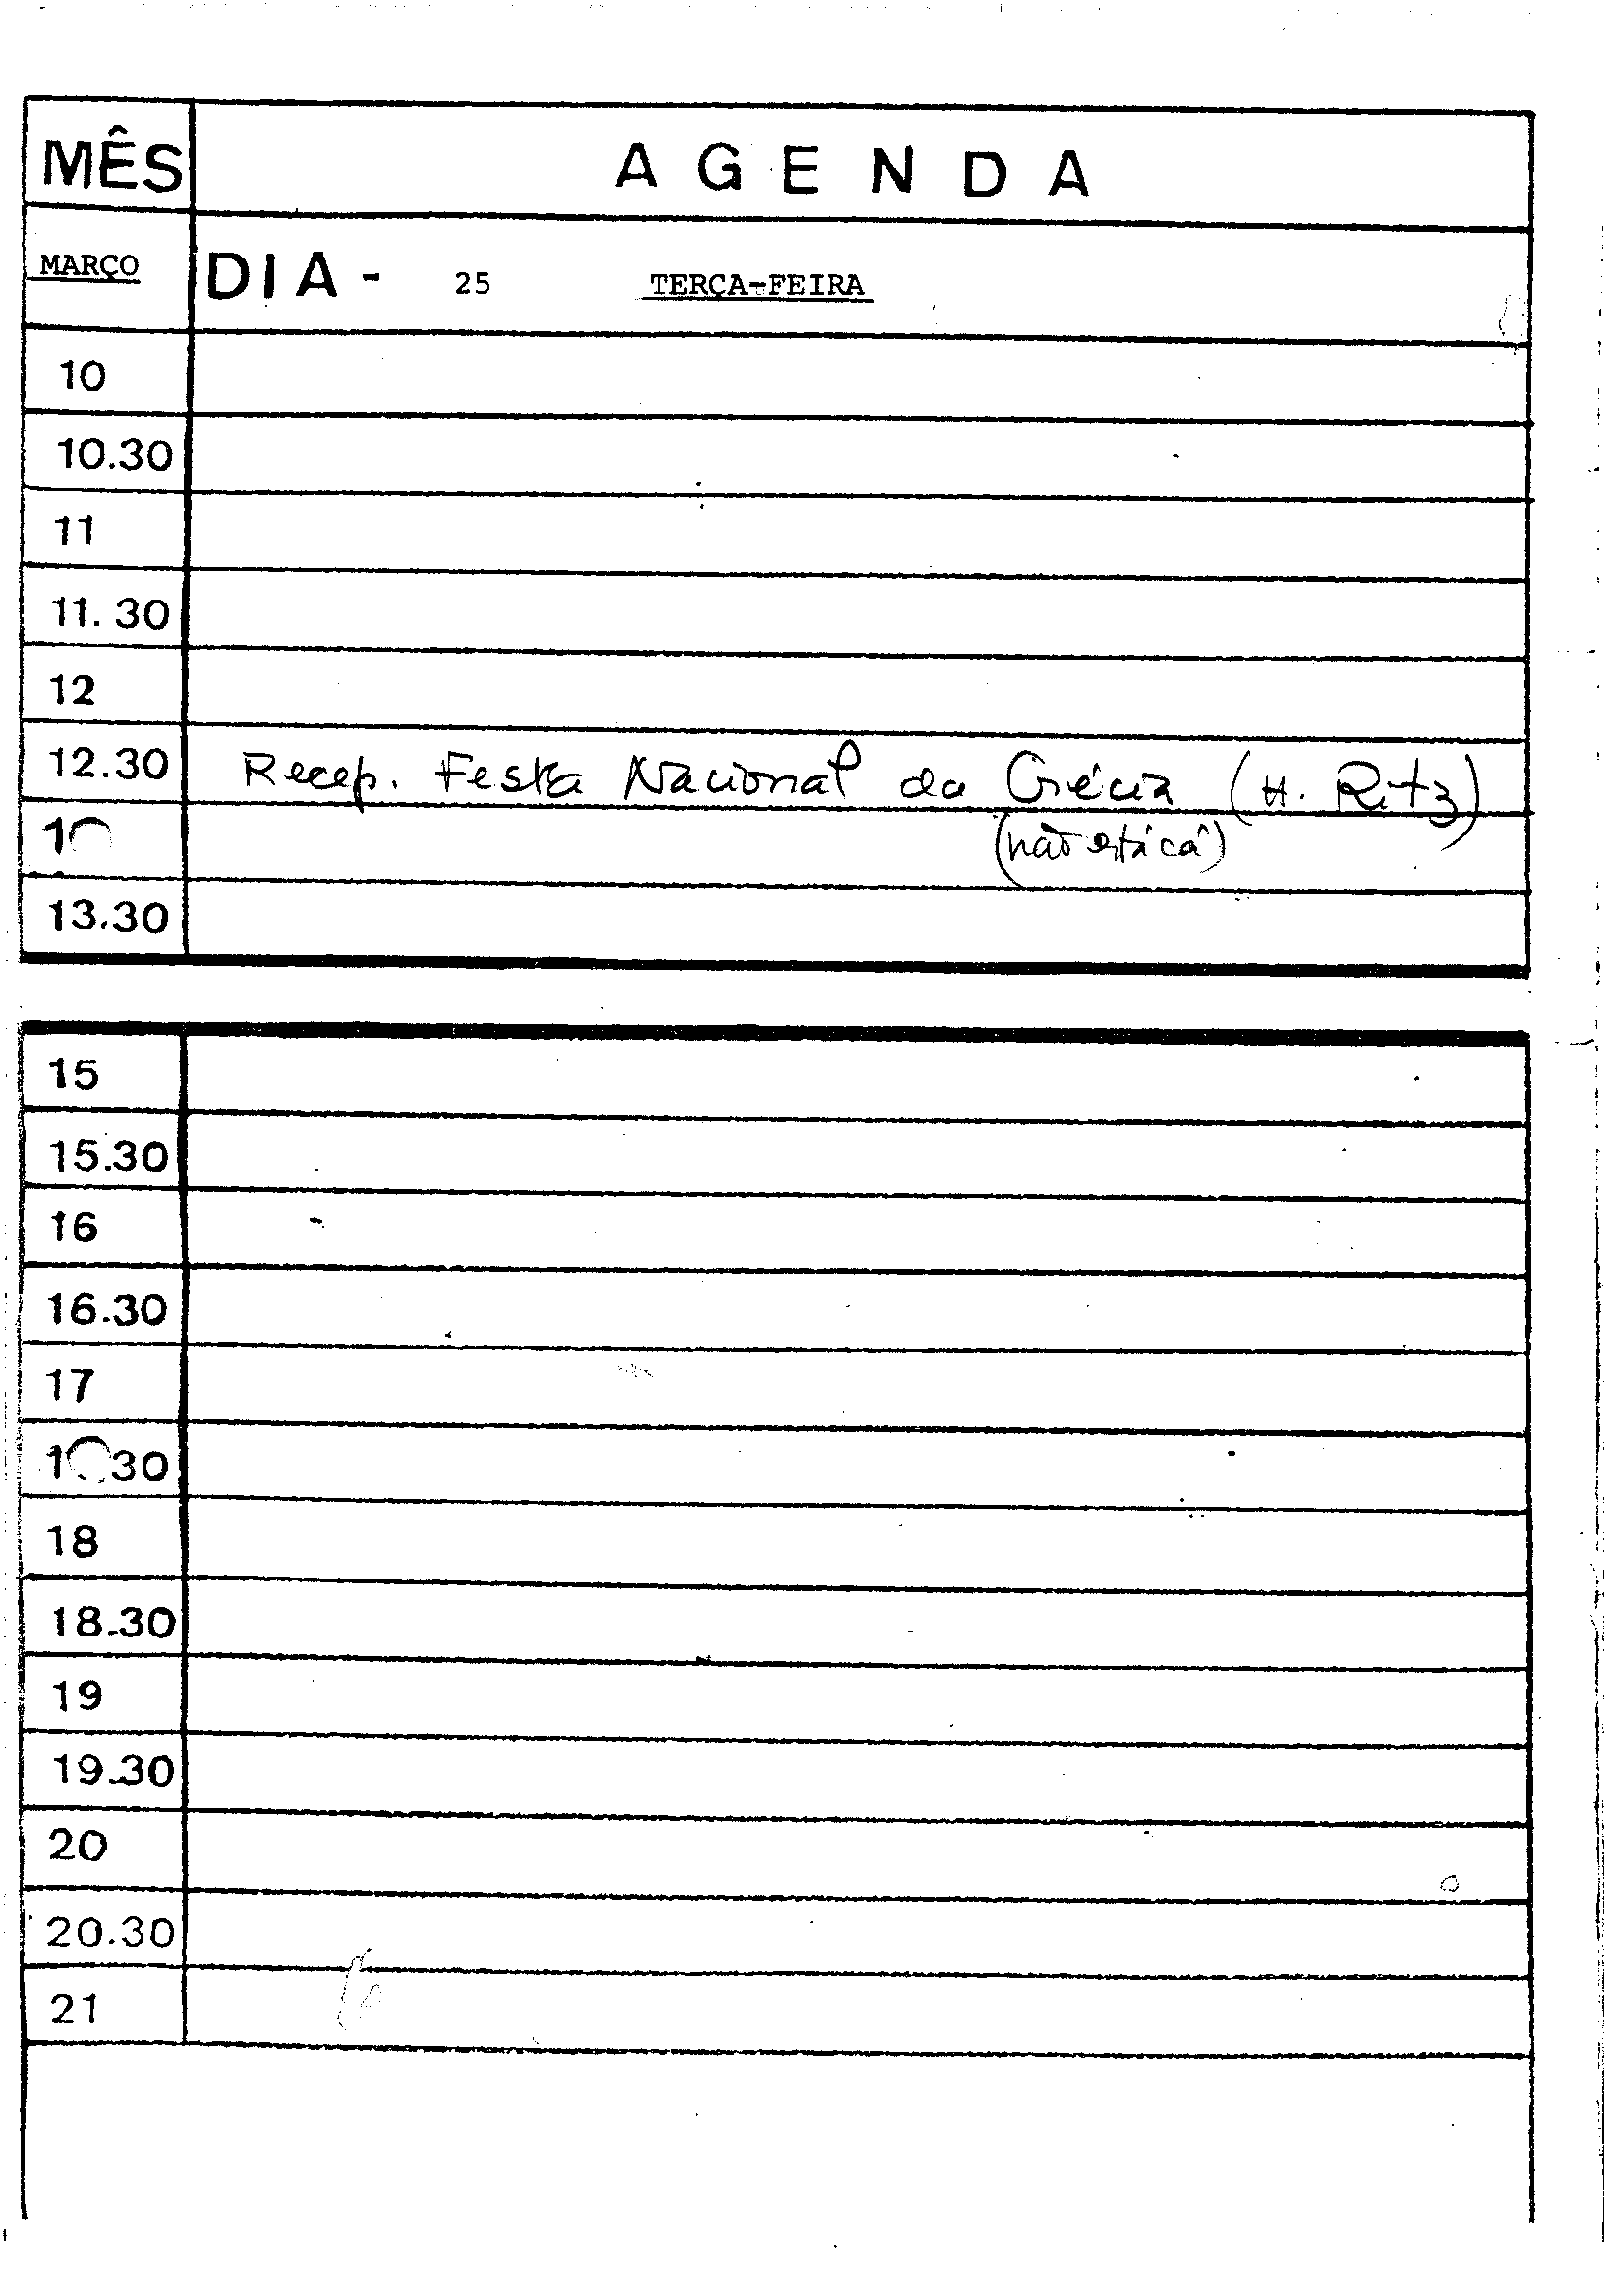 MÊS AGENDA
MARÇO DIA - 25 TERÇA-FEIRA
10
10.30
11
11.30
12
12.30 Recep. Festa Nacional da Grécia (H. Ritz)
(não está cá)
13.30
15
15.30
16
16.30
17
30
18
18.30
19
19.30
20
20.30
21